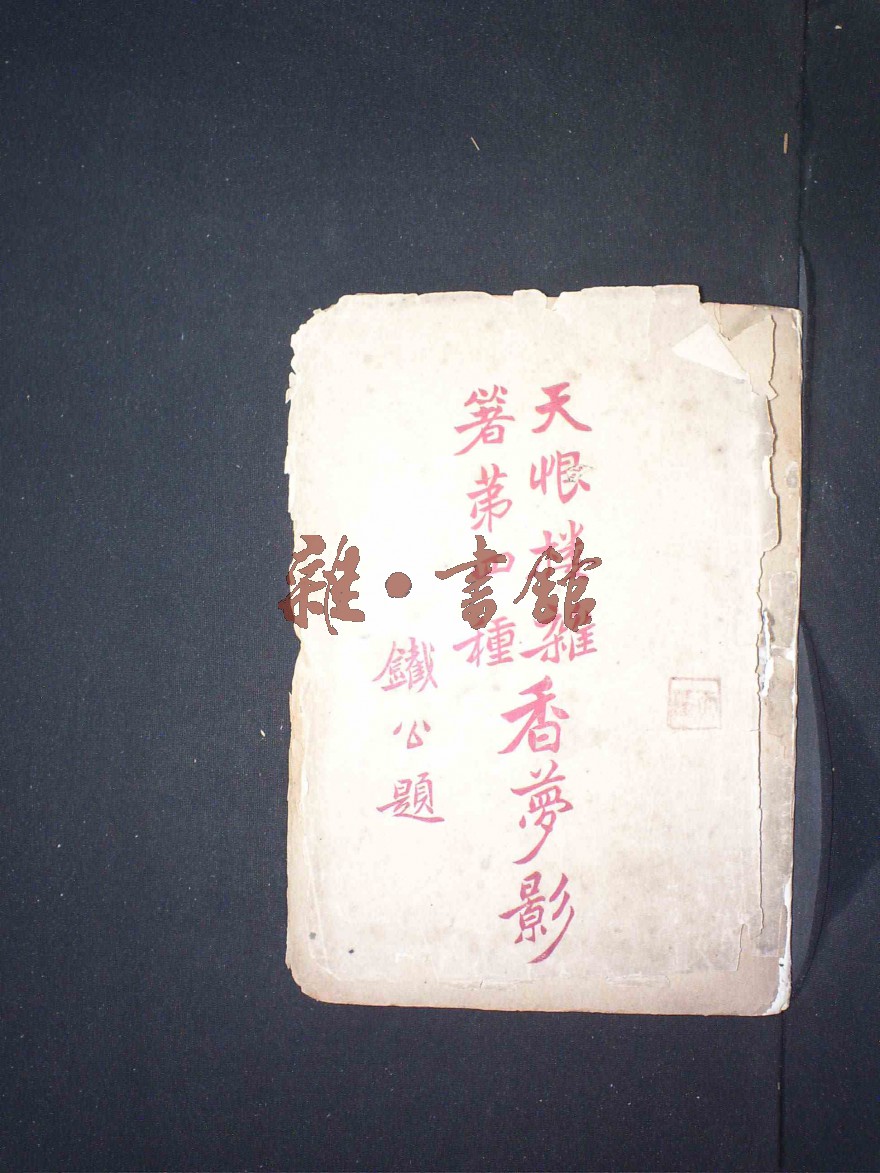 天恨樓雜
箸第四種
香夢影
鐵公題
雜·書館